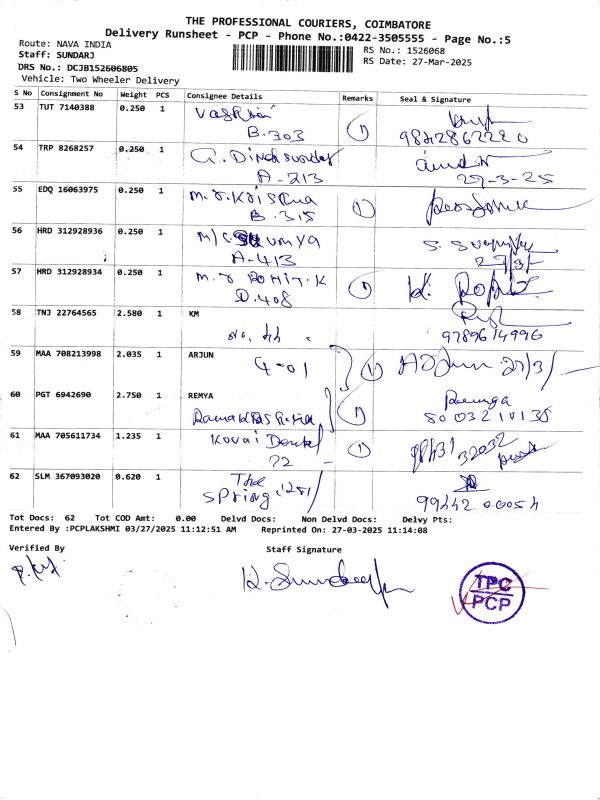 THE PROFESSIONAL COURIERS, COIMBATORE
Delivery Runsheet - PCP - Phone No.:0422-3505555 - Page No.:5
Route: NAVA INDIA
RS No.: 1526068
Staff: SUNDARJ
RS Date: 27-Mar-2025
DRS No.: DCJB152606805
Vehicle: Two Wheeler Delivery
S No Consignment No Weight PCS Consignee Details Remarks Seal & Signature
53 TUT 7140388 0.250 1
B.303 (1) 9842862220
54 TRP 8268257 0.250 1 G. Dinesh
A-213 27-3-25
55 EDQ 16063975 0.250 1 M.S. Krishna
B.315 (1)
56 HRD 312928936 0.250 1
A-413 27/3/-
57 HRD 312928934 0.250 1 M.S ROHIT.K
D.408 (1) K. Rohit
58 TNJ 22764565 2.580 1 KM
9789614996
59 MAA 708213998 2.035 1 ARJUN
(1) Arjun 27/3/-
60 PGT 6942690 2.750 1 REMYA
(1)
61 MAA 705611734 1.235 1 Kovai Dental
72 (1)
62 SLM 367093020 0.620 1 The
Spring 99442 00054
Tot Docs: 62 Tot COD Amt: 0.00 Delvd Docs: Non Delvd Docs: Delvy Pts:
Entered By :PCPLAKSHMI 03/27/2025 11:12:51 AM Reprinted On: 27-03-2025 11:14:08
Verified By Staff Signature
TPC
PCP